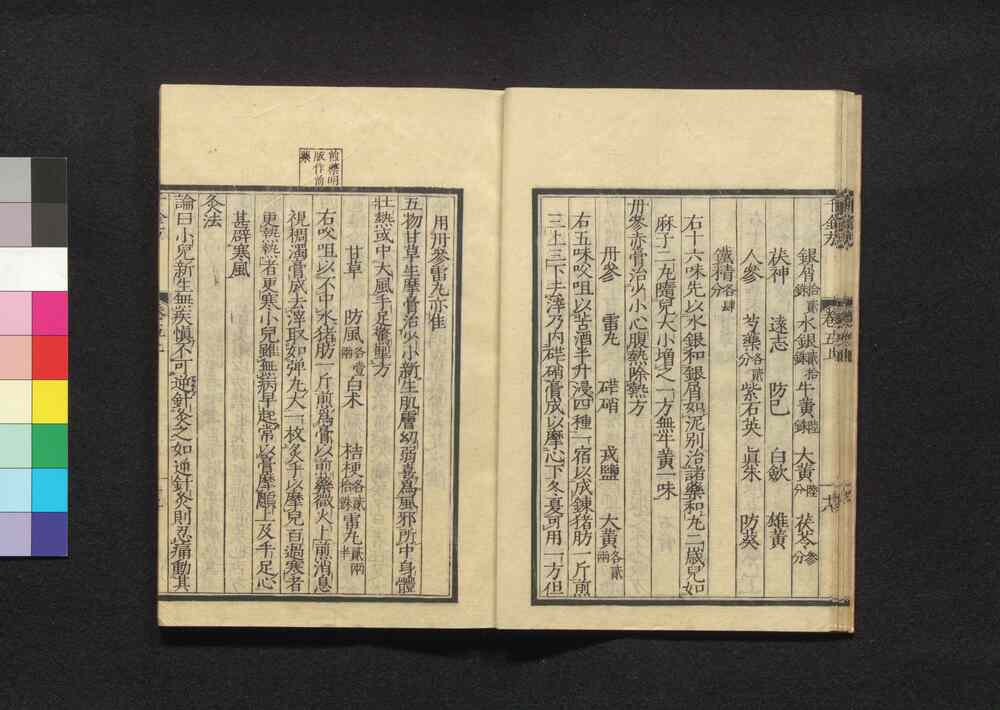 銀屑拾貳銖水銀貳拾銖牛黃陸銖大黃陸分茯苓參分
茯神 遠志 防己 白歛 雄黃
人參 芍藥各貳分紫石英 真朱 防葵
鐵精各肆分
右十六味先以水銀和銀屑如泥別治諸藥和丸二歲兒如
麻子二丸隨兒大小增之一方無牛黃一味
丹參赤膏治少小心腹熱除熱方
丹參 雷丸 硭硝 戎鹽 大黃各貳兩
右五味㕮咀以苦酒半升浸四種一宿以成鍊猪肪一斤煎
三上三下去滓乃內硭硝膏成以摩心下冬夏可用一方但
用丹參雷丸亦佳
五物甘草生摩膏治少小新生肌膚幼弱喜為風邪所中身體
壯熱或中大風手足驚掣方
甘草 防風各壹兩白朮 桔梗各貳拾銖雷丸貳兩半
右㕮咀以不中水猪肪一斤煎為膏以煎藥微火上煎消息
視稠濁膏成去滓取如彈丸大一枚炙手以摩兒百過寒者
更熱熱者更寒小兒雖無病早起常以膏摩顖上及手足心
甚辟寒風
灸法
論曰小兒新生無疾慎不可逆針灸之如逆針灸則忍痛動其
煎藥明
成作前
藥